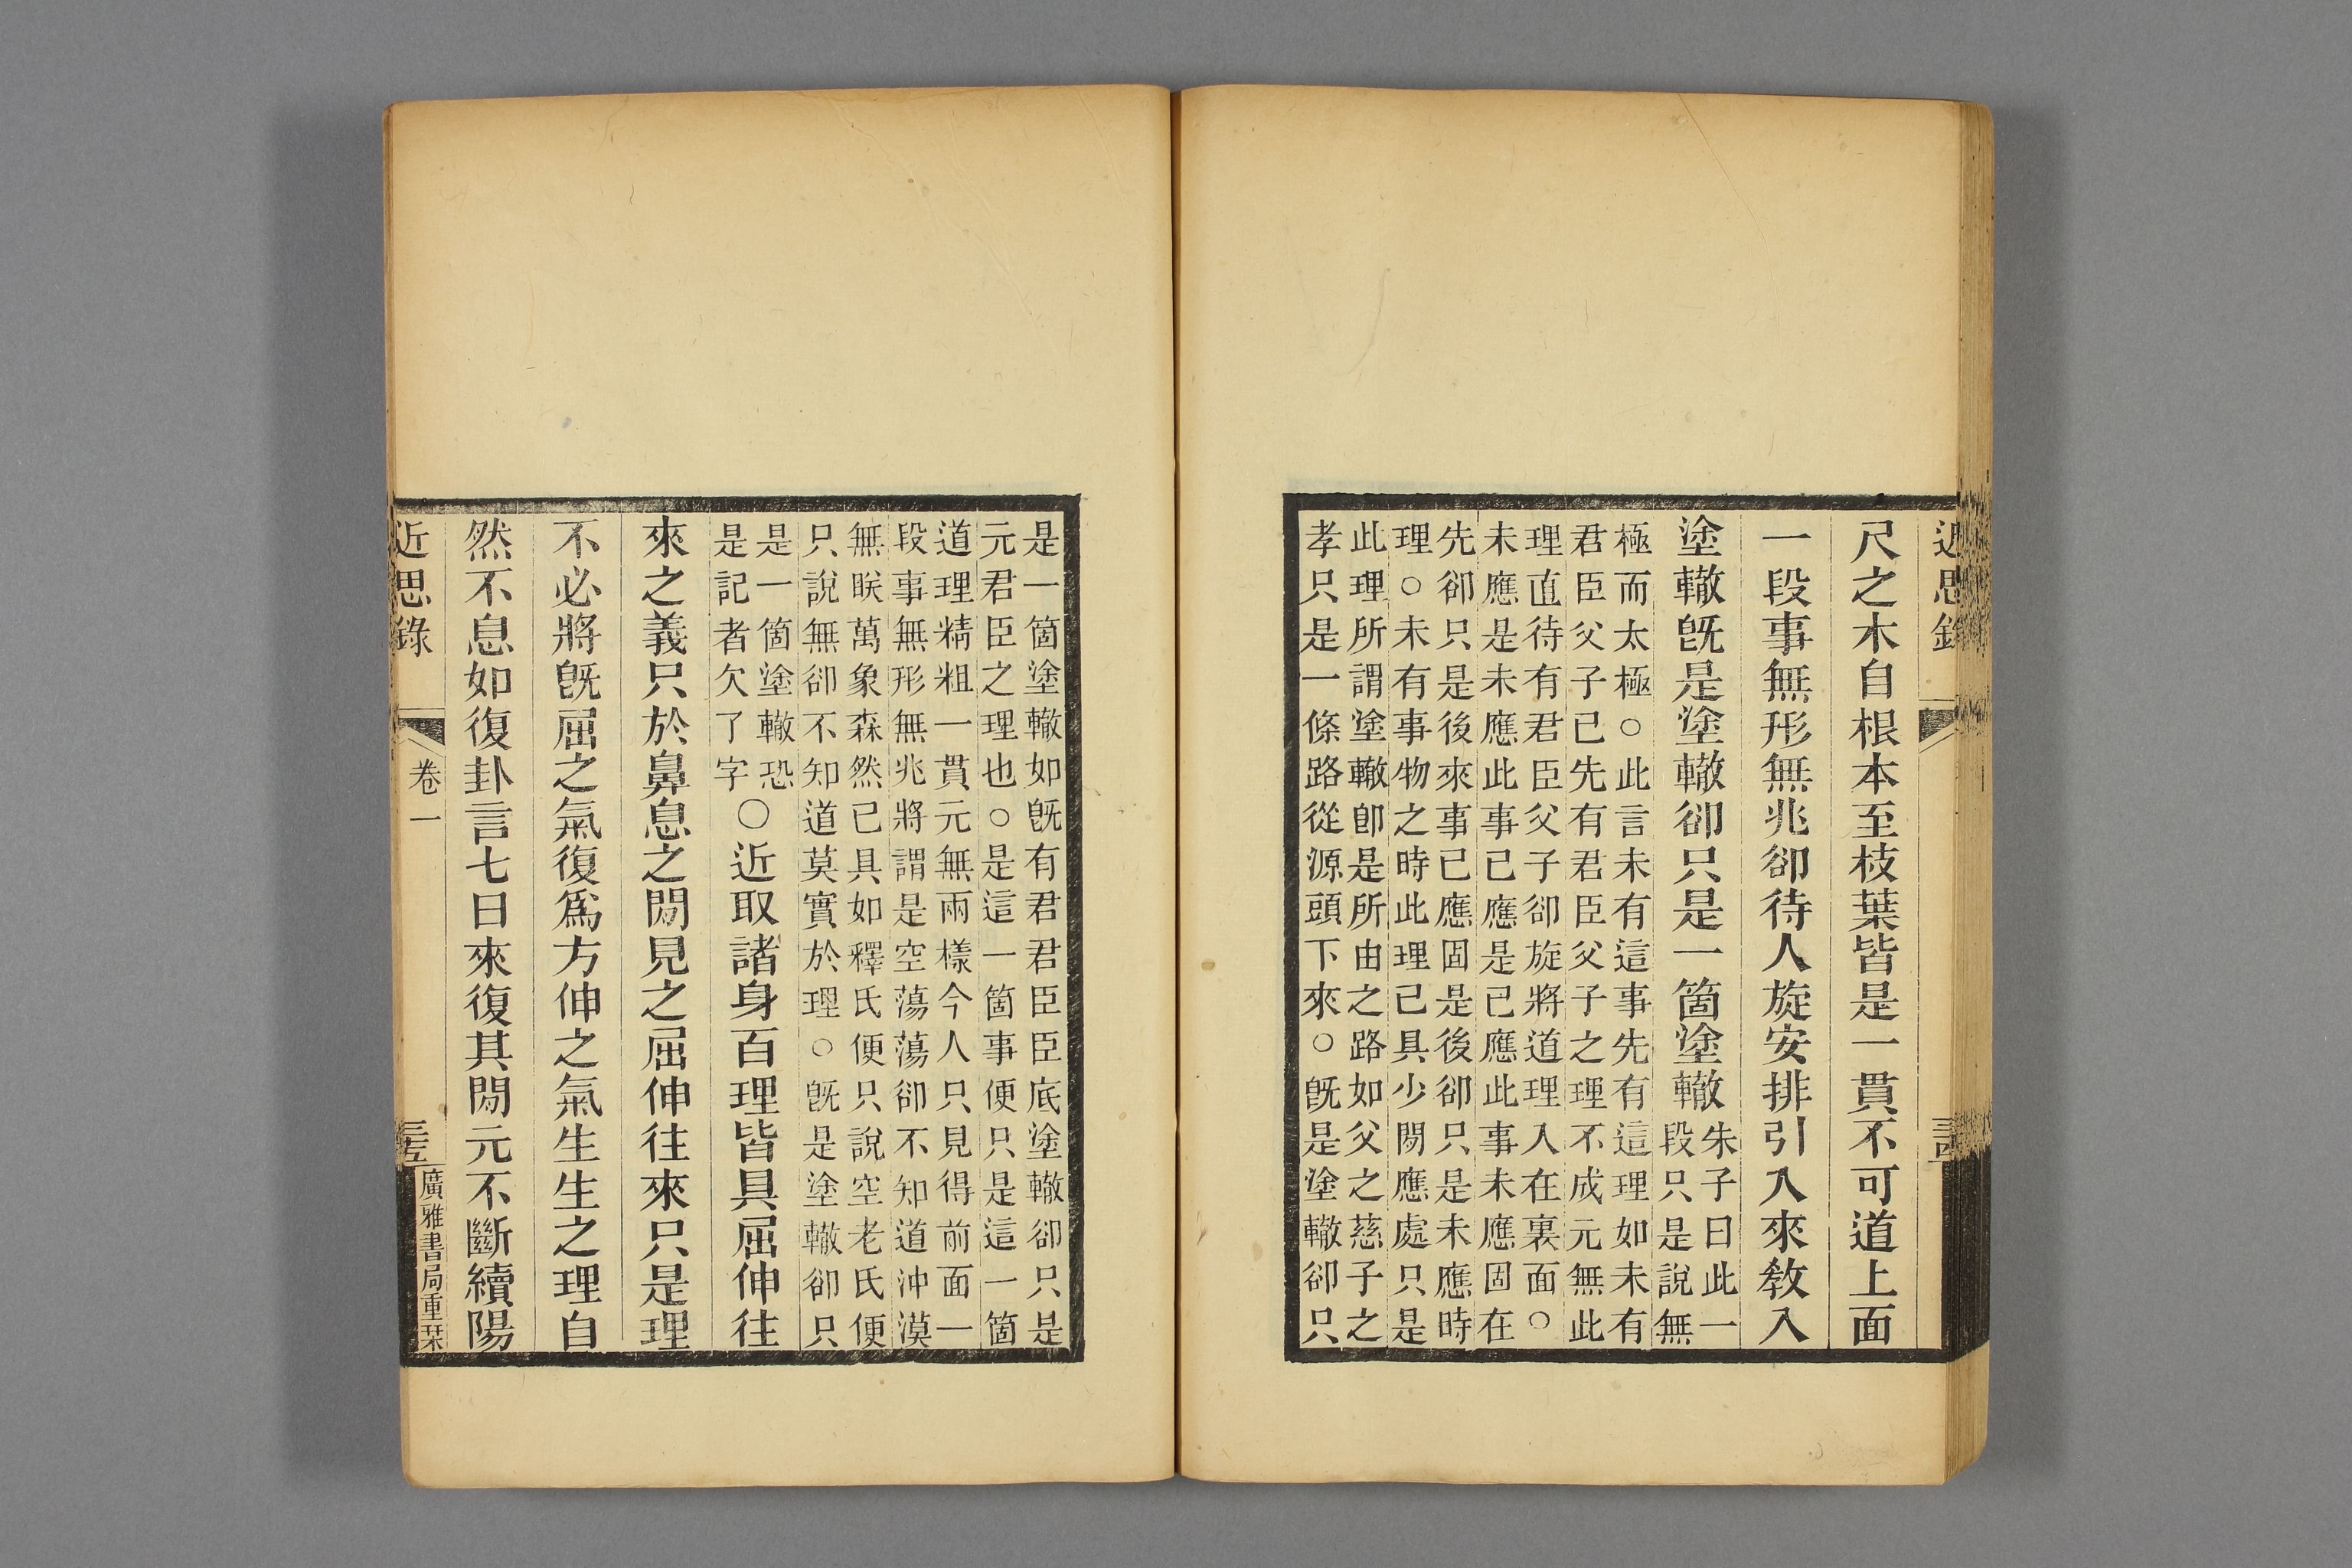 近思錄
三四
尺之木自根本至枝葉皆是一貫不可道上面
一段事無形無兆卻待人旋安排引入來教入
塗轍旣是塗轍卻只是一箇塗轍
朱子曰此一
段只是說無
極而太極○此言未有這事先有這理如未有
君臣父子已先有君臣父子之理不成元無此
理直待有君臣父子卻旋將道理入在裏面○
未應是未應此事已應是已應此事未應固在
先卻只是後來事已應固是後卻只是未應時
理○未有事物之時此理已具少閒應處只是
此理所謂塗轍卽是所由之路如父之慈子之
孝只是一條路從源頭下來○旣是塗轍卻只
是一箇塗轍如旣有君君臣臣底塗轍卻只是
元君臣之理也○是這一箇事便只是這一箇
道理精粗一貫元無兩樣今人只見得前面一
段事無形無兆將謂是空蕩蕩卻不知道沖漠
無眹萬象森然已具如釋氏便只說空老氏便
只說無卻不知道莫實於理○旣是塗轍卻只
是一箇塗轍恐
是記者欠了字
○近取諸身百理皆具屈伸往
來之義只於鼻息之閒見之屈伸往來只是理
不必將旣屈之氣復爲方伸之氣生生之理自
然不息如復卦言七日來復其閒元不斷續陽
近思錄
卷一
三五
廣雅書局重栞